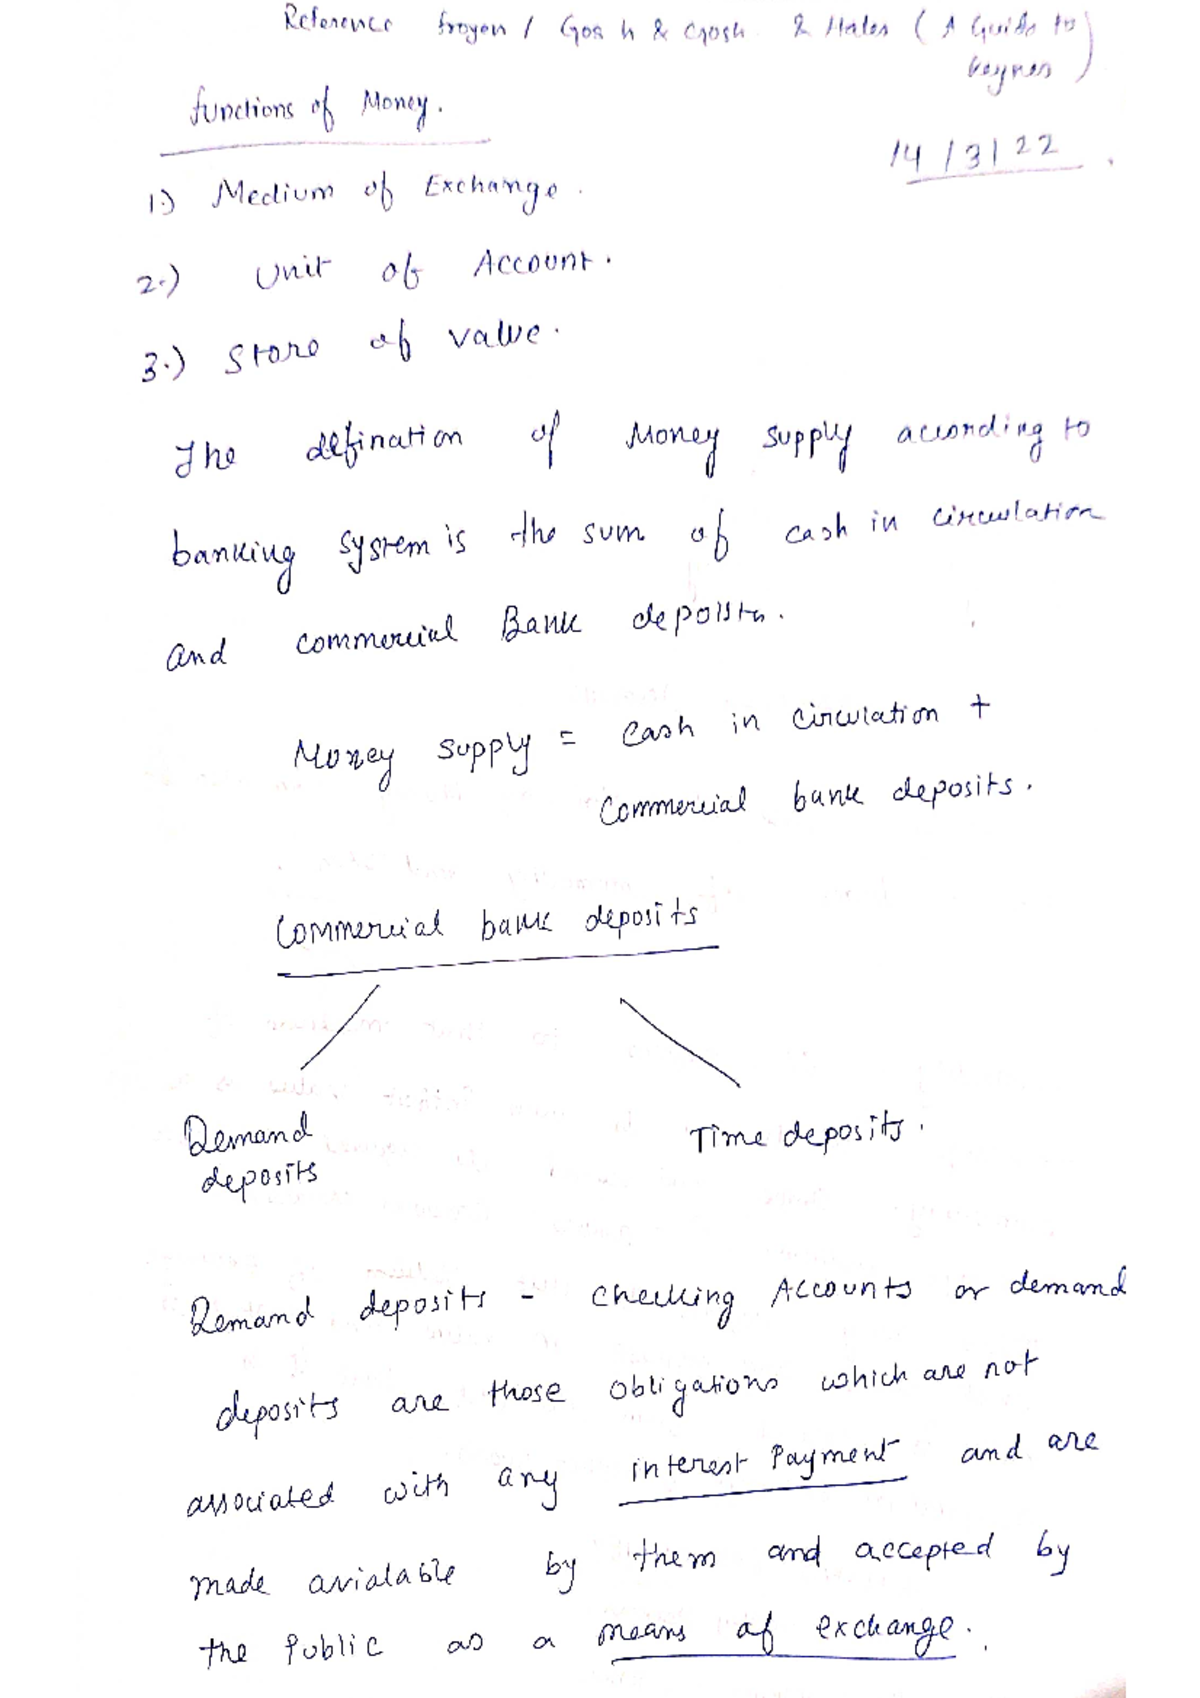 Reference froyen / Gosh & Gosh & Hales (A Guide to
Keynes)
functions of Money.
14/3/22
1.) Medium of Exchange.
2.) Unit of Account.
3.) Store of value.
The defination of Money supply according to
banking system is the sum of cash in circulation
and commercial Bank deposits.
Money supply = Cash in circulation +
Commercial bank deposits.
Commercial bank deposits
Demand Time deposits.
deposits
Demand deposits - Checking Accounts or demand
deposits are those obligations which are not
associated with any interest Payment and are
made avialable by them and accepted by
the Public as a means of exchange.